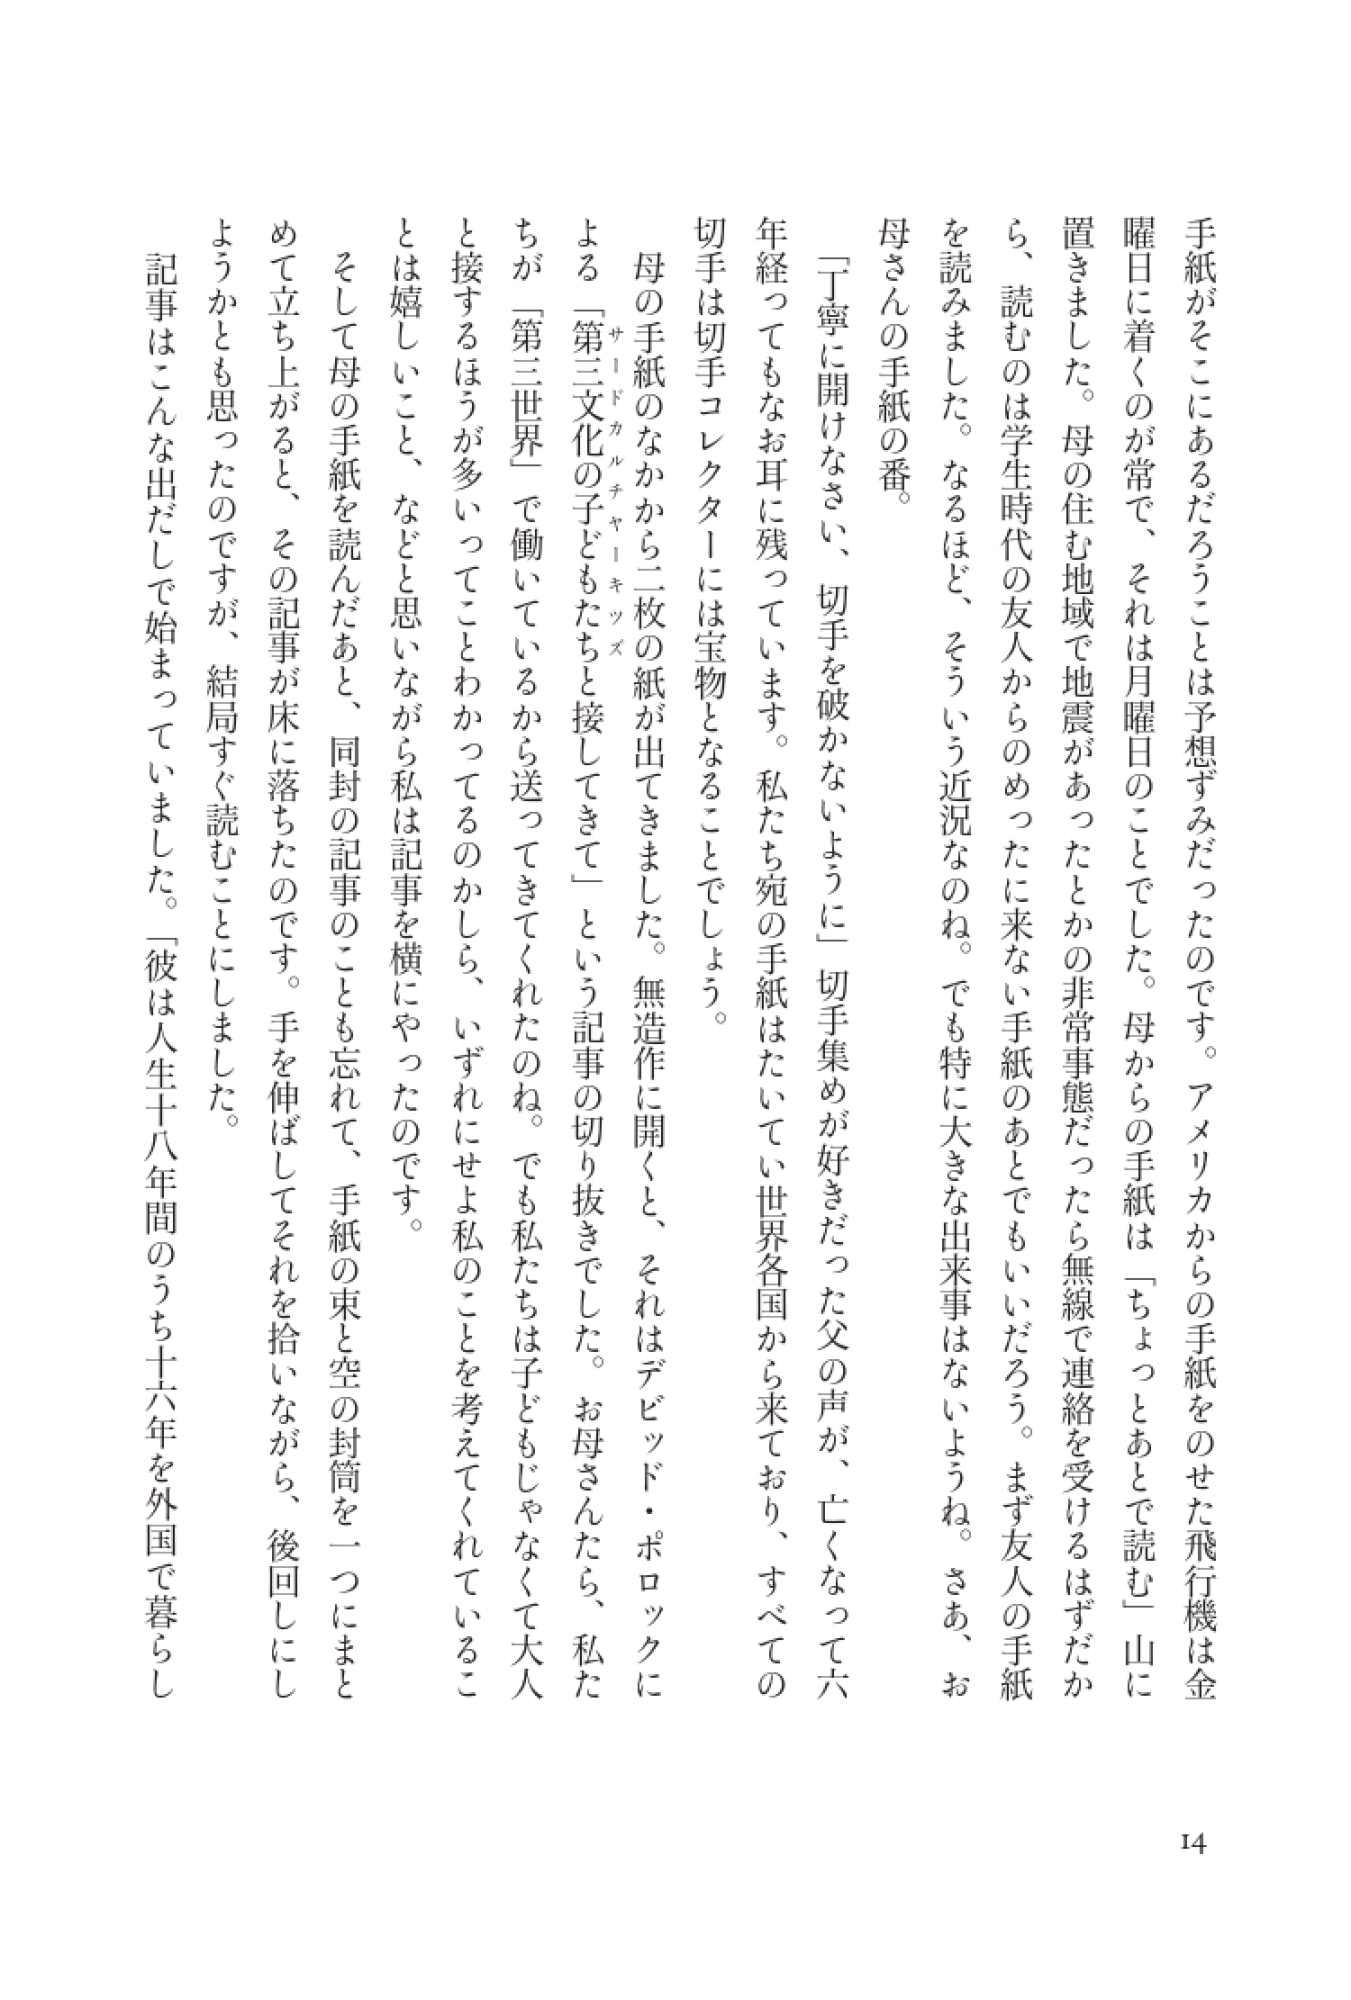 手紙がそこにあるだろうことは予想ずみだったのです。アメリカからの手紙をのせた飛行機は金
曜日に着くのが常で、それは月曜日のことでした。母からの手紙は「ちょっとあとで読む」山に
置きました。母の住む地域で地震があったとかの非常事態だったら無線で連絡を受けるはずだか
ら、読むのは学生時代の友人からのめったに来ない手紙のあとでもいいだろう。まず友人の手紙
を読みました。なるほど、そういう近況なのね。でも特に大きな出来事はないようね。さあ、お
母さんの手紙の番。
「丁寧に開けなさい、切手を破かないように」切手集めが好きだった父の声が、亡くなって六
年経ってもなお耳に残っています。私たち宛の手紙はたいてい世界各国から来ており、すべての
切手は切手コレクターには宝物となることでしょう。
母の手紙のなかから二枚の紙が出てきました。無造作に開くと、それはデビッド・ポロックに
サードカルチャーキッズ
よる「第三文化の子どもたちと接してきて」という記事の切り抜きでした。お母さんたら、私た
ちが「第三世界」で働いているから送ってきてくれたのね。でも私たちは子どもじゃなくて大人
と接するほうが多いってことわかってるのかしら、いずれにせよ私のことを考えてくれているこ
とは嬉しいこと、などと思いながら私は記事を横にやったのです。
そして母の手紙を読んだあと、同封の記事のことも忘れて、手紙の束と空の封筒を一つにまと
めて立ち上がると、その記事が床に落ちたのです。手を伸ばしてそれを拾いながら、後回しにし
ようかとも思ったのですが、結局すぐ読むことにしました。
記事はこんな出だしで始まっていました。「彼は人生十八年間のうち十六年を外国で暮らし
14